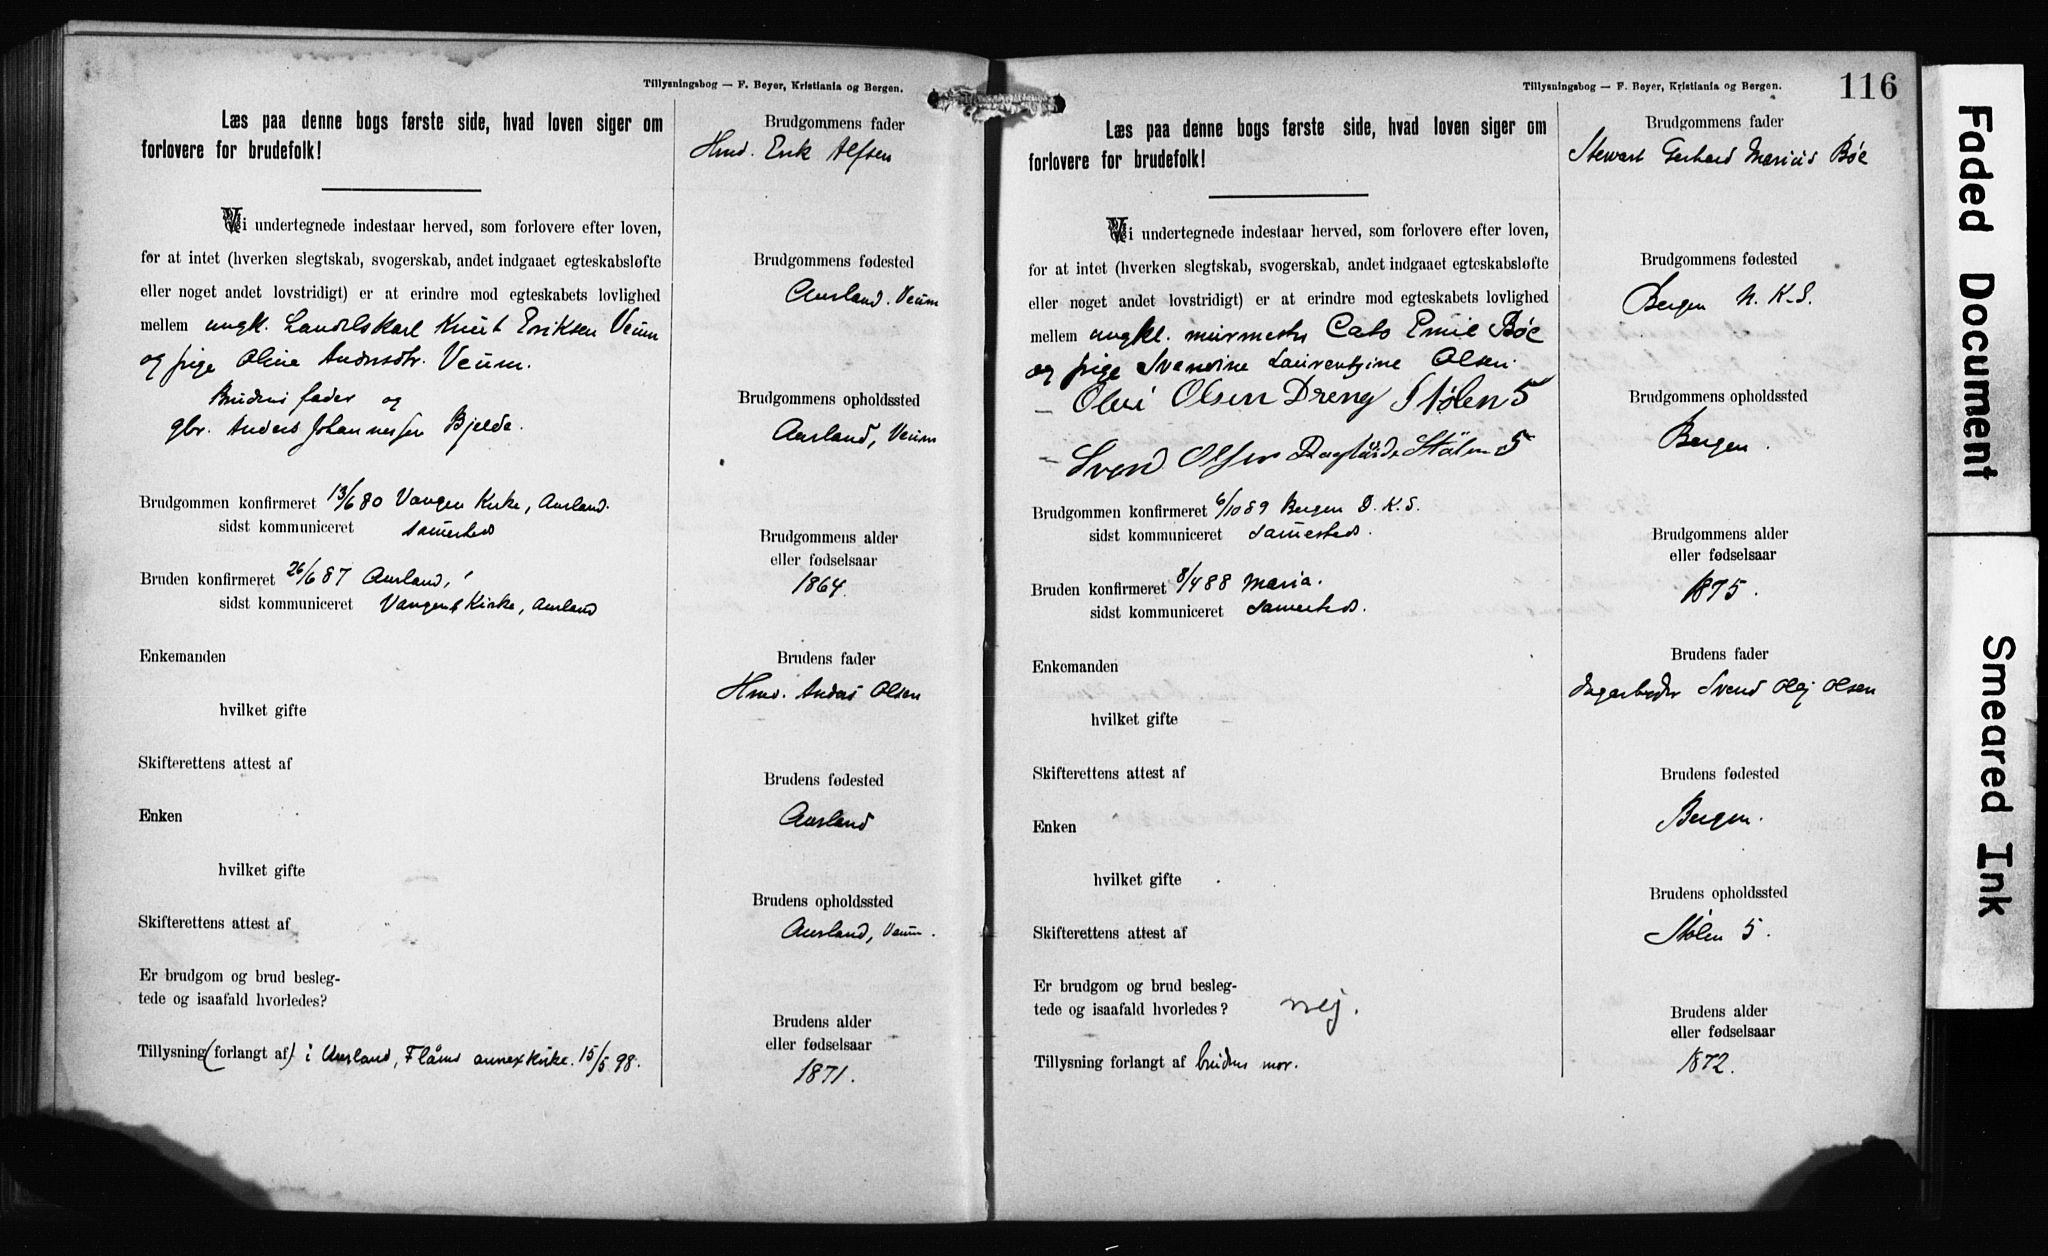 Tillysningsbog — F. Beyer, Kristiania og Bergen.
Læs paa denne bogs første side, hvad loven siger om
forlovere for brudefolk!
Vi undertegnede indestaar herved, som forlovere efter loven,
for at intet (hverken slegtskab, svogerskab, andet indgaaet egteskabsløfte
eller noget andet lovstridigt) er at erindre mod egteskabets lovlighed
mellem ungk. Knut Eriksen Veum
og pige Oline Andersdtr. Veum.
Brudens fader og
gbr. Anders Johannessen Bjelde.
Brudgommen konfirmeret 13/6 80 Vangen Kirke, Aurland.
sidst kommuniceret samesteds
Bruden konfirmeret 26/6 87 Aurland,
sidst kommuniceret Vangens Kirke, Aurland
Enkemanden
hvilket gifte
Skifterettens attest af
Enken
hvilket gifte
Skifterettens attest af
Er brudgom og brud besleg-
tede og isaafald hvorledes?
Tillysning (forlangt af) i Aurland, Flåms annexkirke. 15/5 98.
Brudgommens fader
Hmd. Erik Alfsen
Brudgommens fødested
Aurland. Veum
Brudgommens opholdssted
Aurland, Veum
Brudgommens alder
eller fødselsaar
1864.
Brudens fader
Hmd. Anders Olsen
Brudens fødested
Aurland
Brudens opholdssted
Aurland, Veum.
Brudens alder
eller fødselsaar
1871.
Tillysningsbog — F. Beyer, Kristiania og Bergen.
116
Læs paa denne bogs første side, hvad loven siger om
forlovere for brudefolk!
Vi undertegnede indestaar herved, som forlovere efter loven,
for at intet (hverken slegtskab, svogerskab, andet indgaaet egteskabsløfte
eller noget andet lovstridigt) er at erindre mod egteskabets lovlighed
mellem ungkl. murmester Cato Emil Bøe
og pige Svendine Laurentzine Olsen.
Olai Olsen Dreng Stølen 5
Svend Olsen Stölen 5
Brudgommen konfirmeret 6/10 89 Bergen D. K. S.
sidst kommuniceret samesteds.
Bruden konfirmeret 8/4 88 Maria.
sidst kommuniceret samesteds
Enkemanden
hvilket gifte
Skifterettens attest af
Enken
hvilket gifte
Skifterettens attest af
Er brudgom og brud besleg-
tede og isaafald hvorledes? nej.
Tillysning forlangt af brudens mor.
Brudgommens fader
Stewart Gerhard Marius Bøe
Brudgommens fødested
Bergen N. K. S.
Brudgommens opholdssted
Bergen.
Brudgommens alder
eller fødselsaar
1875.
Brudens fader
Svend Olej Olsen
Brudens fødested
Bergen.
Brudens opholdssted
Stølen 5.
Brudens alder
eller fødselsaar
1872.
Faded Document
Smeared Ink